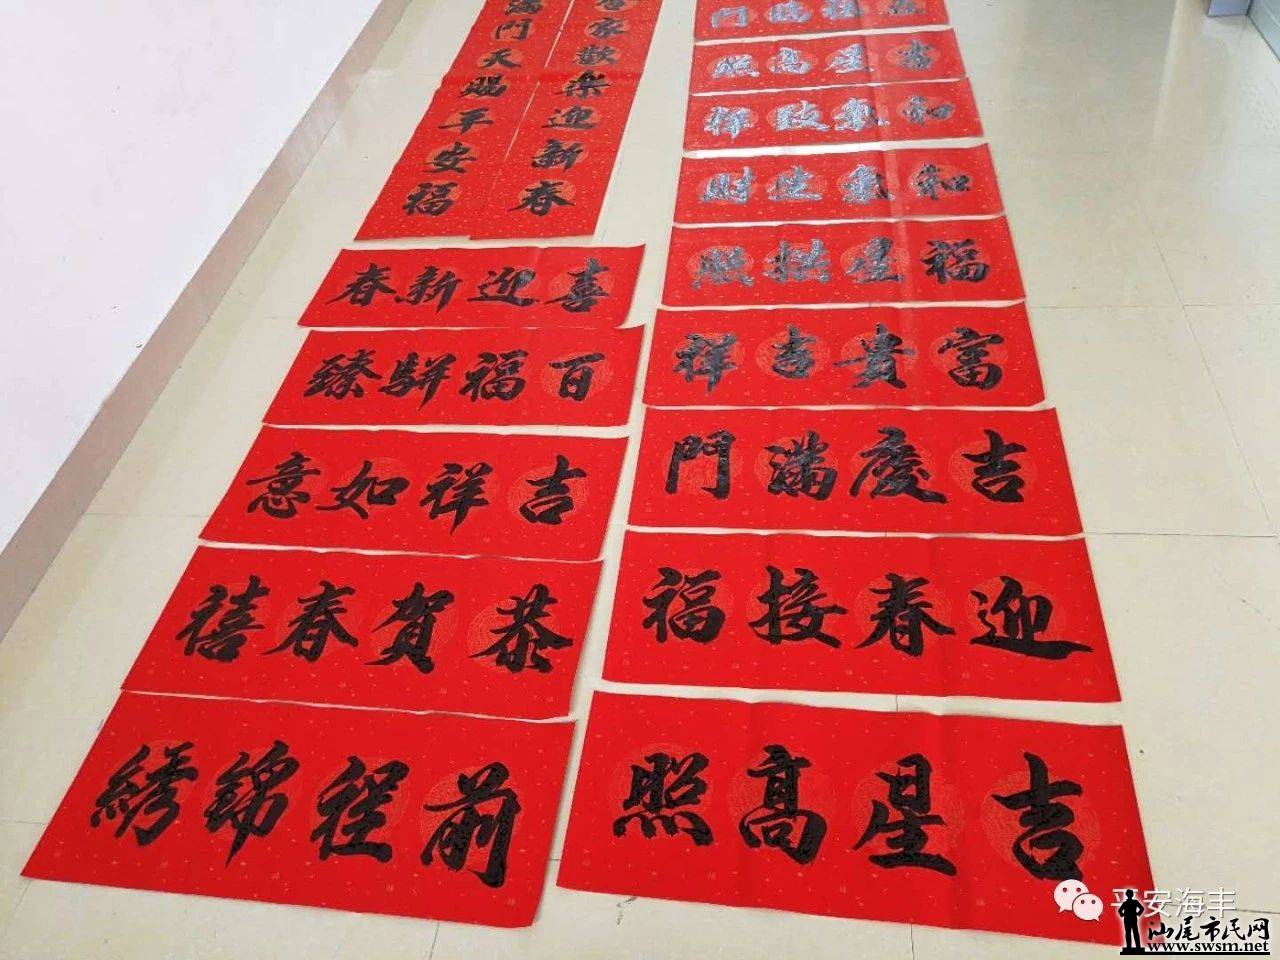 家歡樂迎新春
滿門天賜平安福
喜迎新春
百福駢臻
吉祥如意
恭賀春禧
前程錦綉
滿門
吉星高照
和氣致祥
和氣生財
福星拱照
富貴吉祥
吉慶滿門
迎春接福
吉星高照
平安海丰
汕尾市民网
www.swsm.net